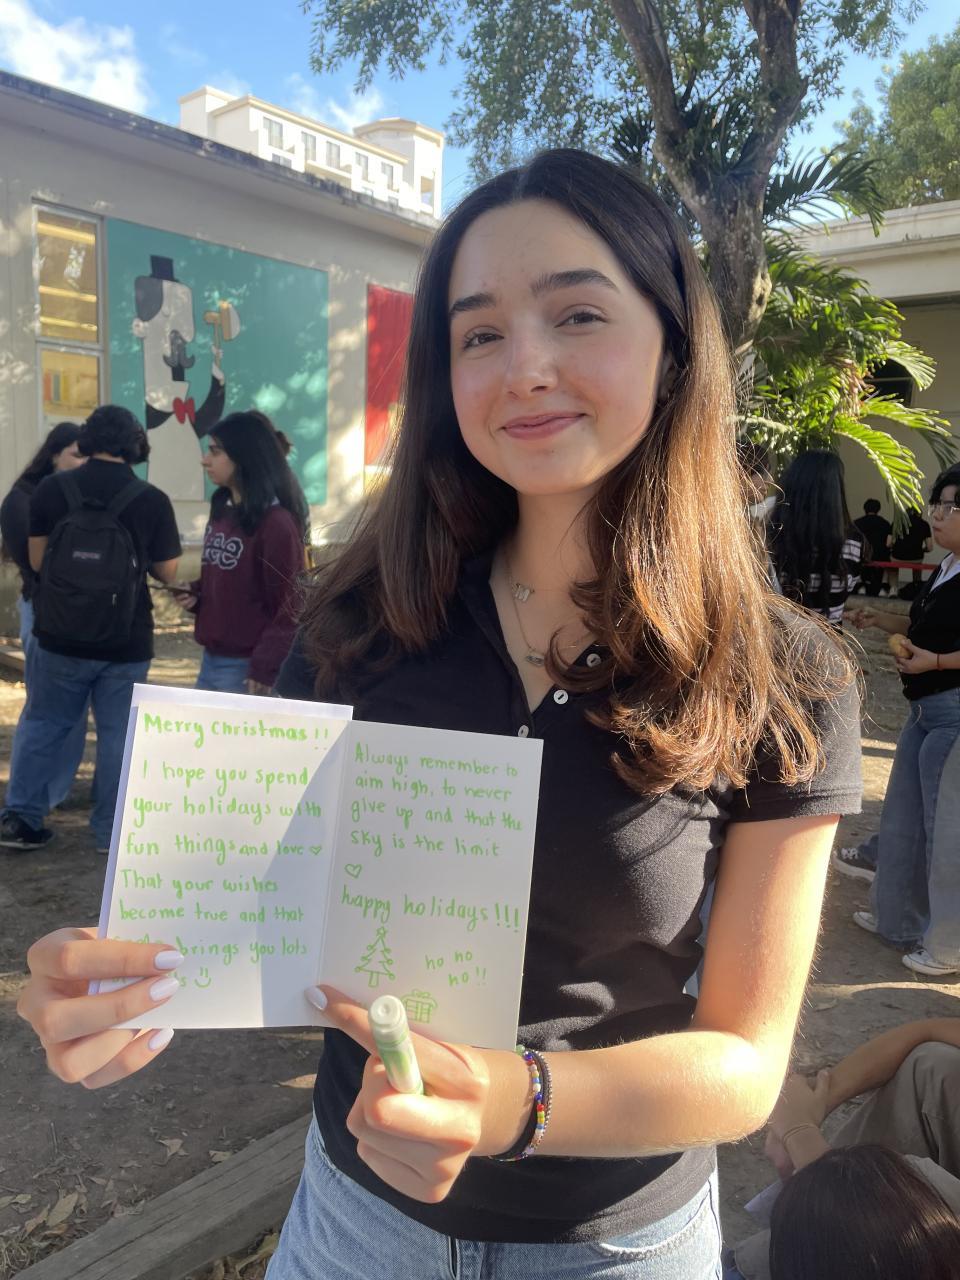 Merry Christmas !!
I hope you spend
your holidays with
fun things and love ♡
That your wishes
become true and that
brings you lots
☺
Always remember to
aim high, to never
give up and that the
sky is the limit
♡
happy holidays!!!
ho ho
ho!!
JANSPORT
M